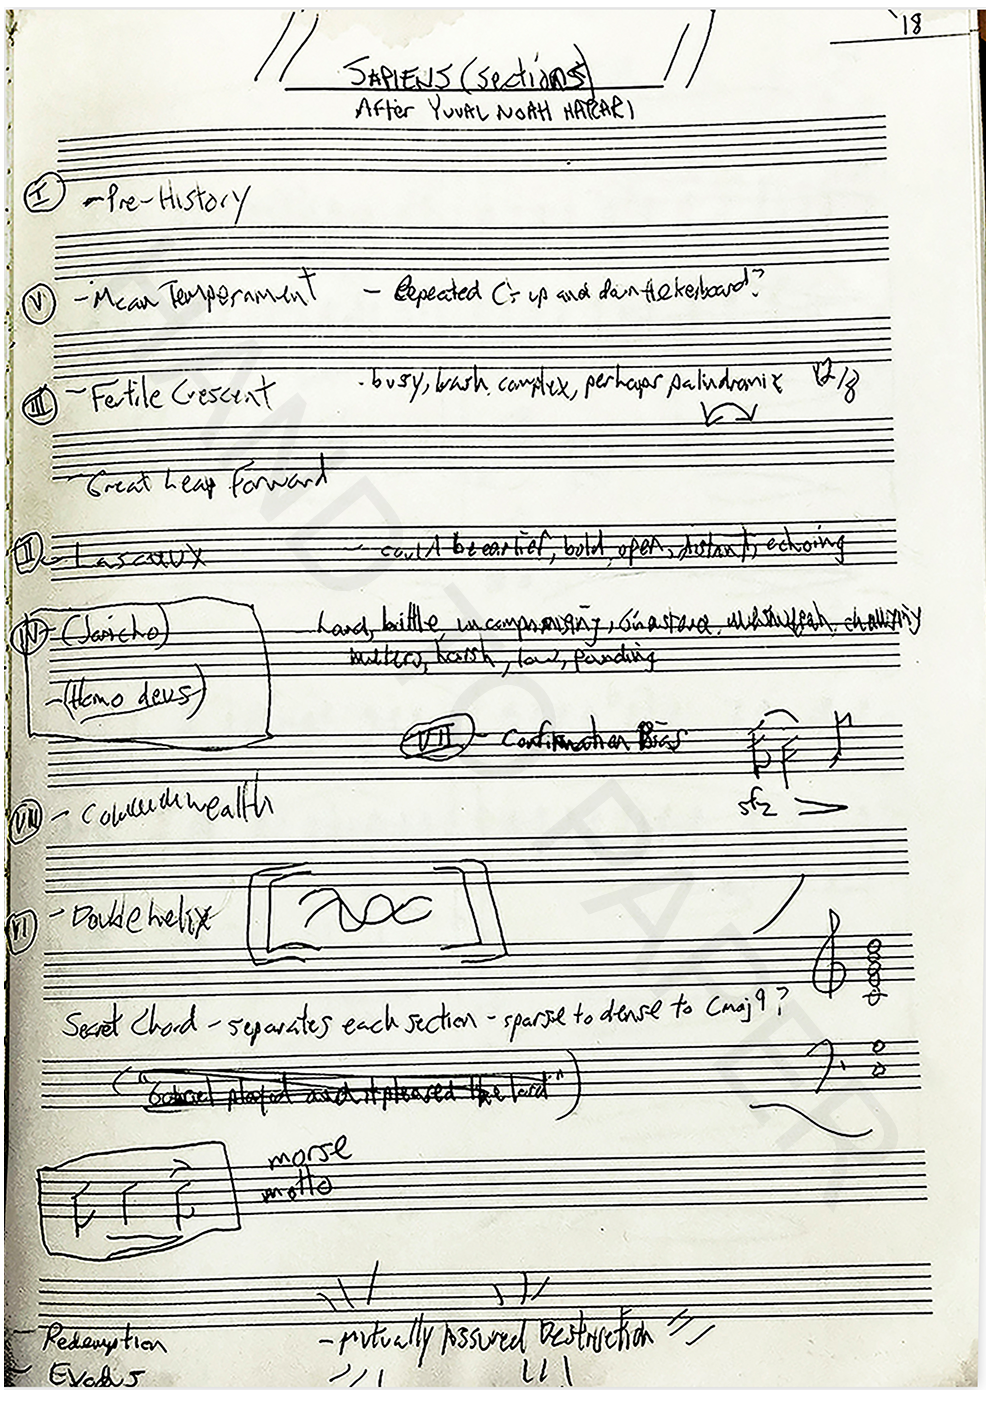 '18
SAPIENS (sections)
After YUVAL NOAH HARARI
I - Pre-History
V - Mean Tempernment - Repeated C's up and down the keyboard?
III - Fertile Crescent - busy, brash, complex, perhaps palindromic 12/8
- Great Leap Forward
II - Lascaux - could be earlier, bold, open, distant, echoing
IV - (Jericho) hard, brittle, uncompromising,
meters, harsh, low, pounding
- (Homo deus)
VII - Confirmation Bias
sfz
VIII - Commonwealth
VI - Double helix
Secret Chord - separates each section - sparse to dense to Cmaj9?
("Gabriel played and it pleased the lord")
morse
motto
- Redemption - Mutually Assured Destruction
- Exodus
HAND TO PAPER